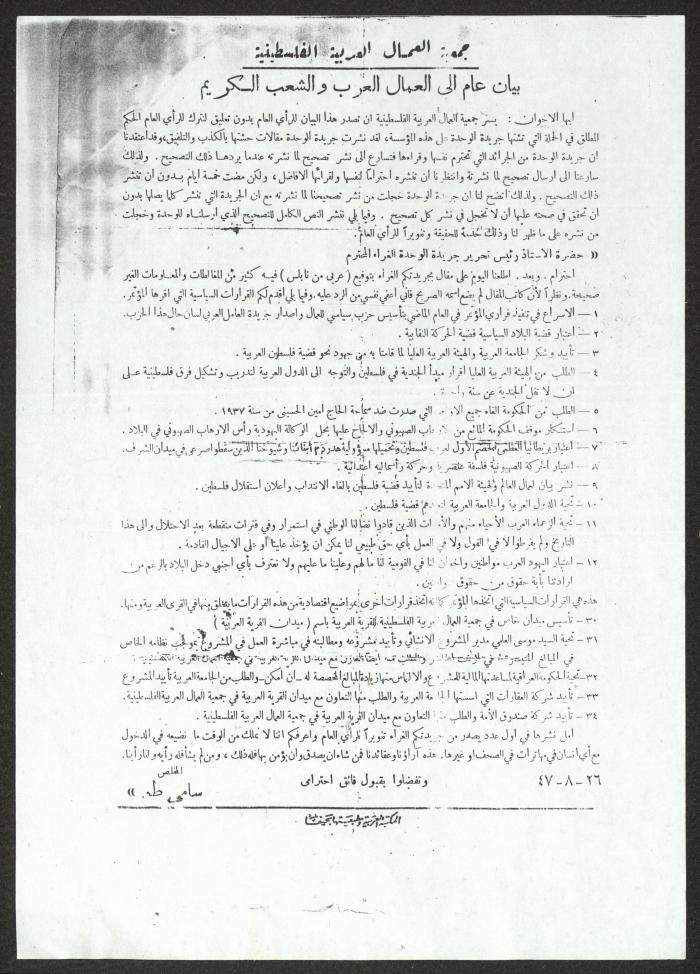 جمعية العمال العربية الفلسطينية
بيان عام الى العمال العرب والشعب الكريم
ايها الاخوان: يسر جمعية العمال العربية الفلسطينية ان تصدر هذا البيان للرأي العام بدون تعليق لنترك للرأي العام الحكم
المطلق في الحملة التي تشنها جريدة الوحدة على هذه المؤسسة، لقد نشرت جريدة الوحدة مقالات حشتها بالكذب والتلفيق، وقد اعتقدنا
ان جريدة الوحدة من الجرائد التي تحترم نفسها وقراءها فتسارع الى نشر تصحيح لما نشرته عندما يردها ذلك التصحيح. ولذلك
سارعنا الى ارسال تصحيح لما نشرته وانتظرنا أن تنشره احتراماً لنفسها ولقرائها الافاضل، ولكن مضت خمسة أيام بدون أن تنشر
ذلك التصحيح. ولذلك اتضح لنا ان جريدة الوحدة خجلت من نشر تصحيحنا لما نشرته مع ان الجريدة التي تنشر كلما يصلها بدون
ان تحقق في صحته عليها أن لا تخجل في نشر كل تصحيح. وفيما يلي ننشر النص الكامل للتصحيح الذي أرسلناه للوحدة وخجلت
من نشره على ما ظهر لنا وذلك خدمة للحقيقة وتنويراً للرأي العام.
« حضرة الاستاذ رئيس تحرير جريدة الوحدة الغراء المحترم
احترام. وبعد. اطلعنا اليوم على مقال بجريدتكم الغراء بتوقيع (عربي من نابلس) فيه كثير من المغالطات والمعلومات الغير
صحيحة. ونظراً لأن كاتب المقال لم يضع اسمه الصريح فاني اعفي نفسي من الرد عليه. وفيما يلي اقدم لكم القرارات السياسية التي اقرها المؤتمر.
١ — الاسراع في تنفيذ قراري المؤتمر في العام الماضي بتأسيس حزب سياسي للعمال واصدار جريدة العامل العربي لسان حال هذا الحزب.
٢ — اعتبار قضية البلاد السياسية قضية الحركة النقابية.
٣ — تأييد وشكر الجامعة العربية والهيئة العربية العليا لما قامتا به من جهود نحو قضية فلسطين العربية.
٤ — الطلب من الهيئة العربية العليا اقرار مبدأ الجندية في فلسطين والتوجه الى الدول العربية لتدريب وتشكيل فرق فلسطينية على
ان لا تقل الجندية عن سنة واحدة.
٥ — الطلب من الحكومة الغاء جميع الاوامر التي صدرت ضد سماحة الحاج أمين الحسيني من سنة ١٩٣٧.
٦ — استنكار موقف الحكومة المائع من الارهاب الصهيوني والالحاح عليها بحل الوكالة اليهودية رأس الارهاب الصهيوني في البلاد.
٧ — اعتبار بريطانيا العظمى الخصم الأول لعرب فلسطين وتحميلها مسؤولية هدر دم أبنائنا وشيوخنا الذين سقطوا صرعى في ميدان الشرف.
٨ — اعتبار الحركة الصهيونية فلسفة عنصرية وحركة رأسمالية اعتدائية.
٩ — نشر بيان لعمال العالم ولهيئة الامم المتحدة لتأييد قضية فلسطين بالغاء الانتداب واعلان استقلال فلسطين.
١٠ — تحية الدول العربية والجامعة العربية لدعمهم قضية فلسطين.
١١ — تحية الزعماء العرب الأحياء منهم والأموات الذين قادوا نضالنا الوطني في استمرار وفي فترات متقطعة بعد الاحتلال والى هذا
التاريخ ولم يفرطوا لا في القول ولا في العمل بأي حق طبيعي لنا يمكن ان يؤخذ علينا أو على الاجيال القادمة.
١٢ — اعتبار اليهود العرب مواطنين واخوان لنا في القومية لنا ما لهم وعلينا ما عليهم ولا نعترف بأي أجنبي دخل البلاد بالرغم من
ارادتنا بأية حقوق من حقوق
هذه هي القرارات السياسية التي اتخذها المؤتمر كما انه اتخذ قرارات اخرى بمواضيع اقتصادية من هذه القرارات ما يتعلق بها في القرى العربية ومنها.
٣٠ — تأسيس ميدان خاص في جمعية العمال العربية الفلسطينية للقرية العربية باسم (ميدان القرية العربية)
٣١ — تحية السيد موسى العلمي مدير المشروع الانشائي وتأييد مشروعه ومطالبته في مباشرة العمل في المشروع بموجب نظامه الخاص
في المبالغ
٣٢ — تحية الحكومة العراقية لمساعدتها المالية للمشروع والالتماس منها زيادة المبالغ المخصصة له — ان أمكن — والطلب من الجامعة العربية تأييد المشروع
٣٣ — تأييد شركة العقارات التي اسستها الجامعة العربية والطلب منها التعاون مع ميدان القرية العربية في جمعية العمال العربية الفلسطينية.
٣٤ — تأييد شركة صندوق الأمة والطلب منها التعاون مع ميدان القرية العربية في جمعية العمال العربية الفلسطينية.
آمل نشرها في اول عدد يصدر من جريدتكم الغراء تنويراً للرأي العام واعرفكم اننا لا نملك من الوقت ما نضيعه في الدخول
مع أي انسان في مهاترات في الصحف او غيرها. هذه آراؤنا وعقائدنا فمن شاء ان يصدق وان يؤمن بها فله ذلك، ومن لم يشأ فله رأيه ولنا رأينا.
وتفضلوا بقبول فائق احترامي
٢٦-٨-٤٧
المخلص
سامي طه »